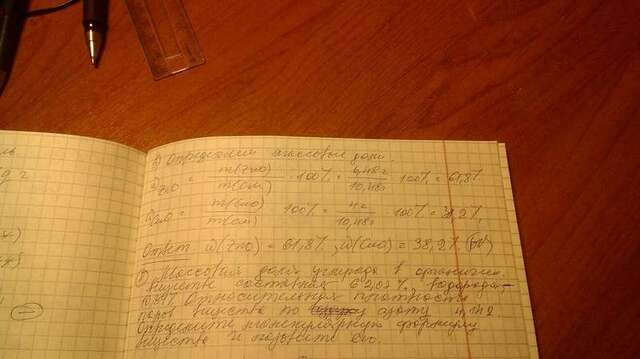 Определяем массовые доли.
ω ZnO = m(ZnO) / m(см) · 100% = 6,48г / 10,48г · 100% = 61,8%
ω CuO = m(CuO) / m(см) · 100% = 4г / 10,48г · 100% = 38,2%
Ответ: ω(ZnO) = 61,8%, ω(CuO) = 38,2%
Массовая доля углерода в органическ.
веществе составляет 62,07%, водорода -
10,34%. Относительная плотность
паров вещества по азоту 4,142
Определите молекулярную формулу
вещества и назовите его.